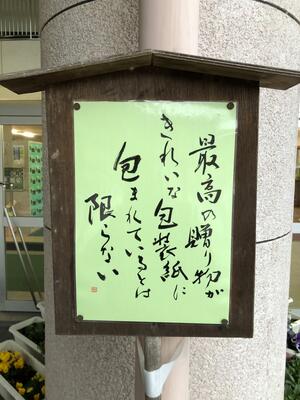 最高の贈り物が
きれいな包装紙に
包まれているとは
限らない